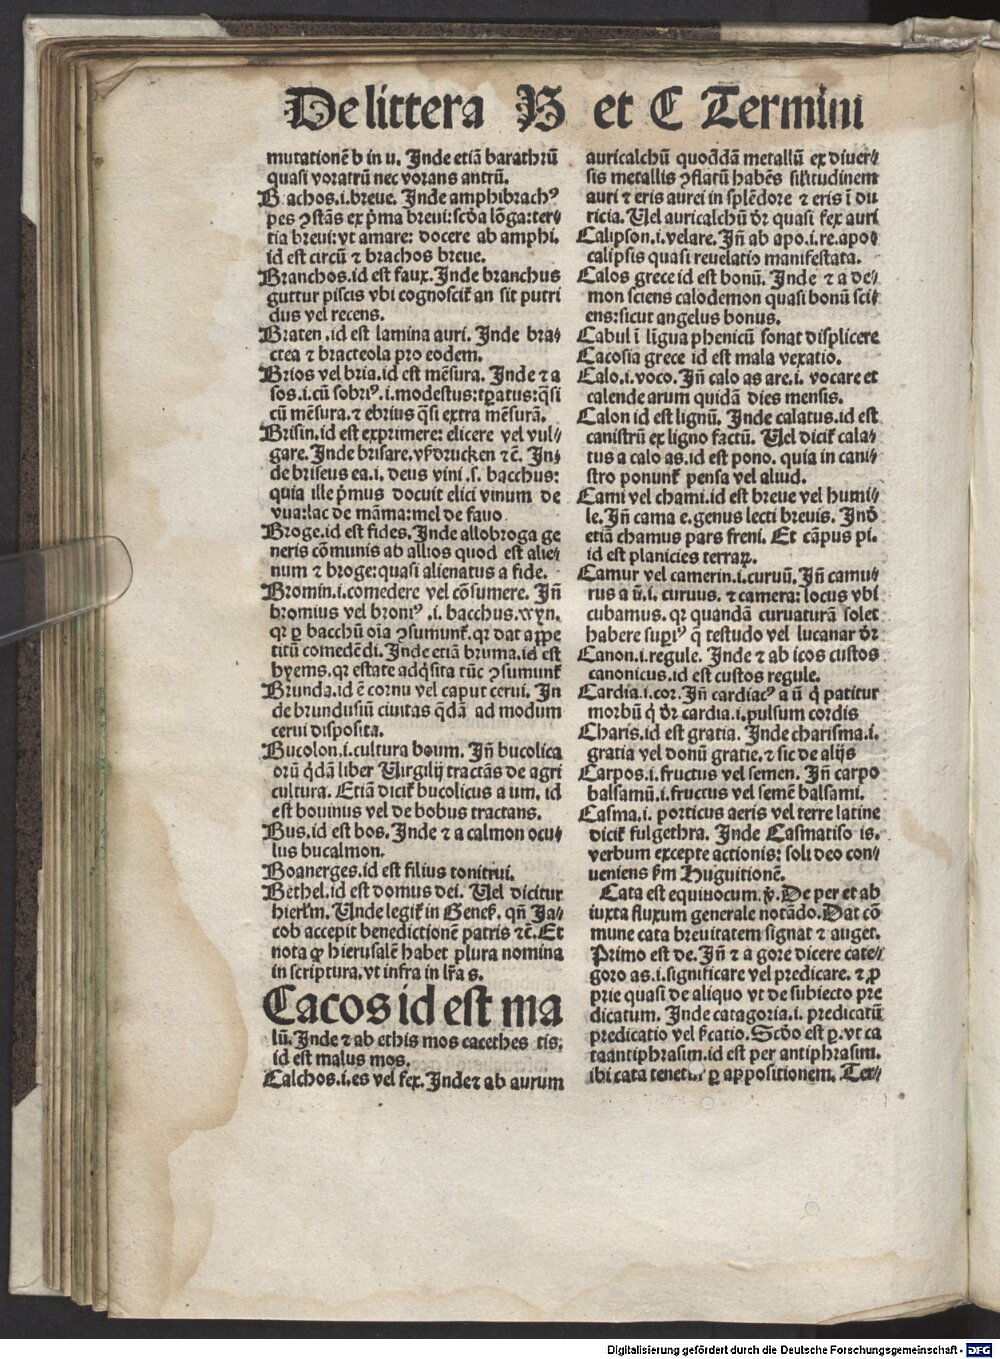 De littera B et C Termini
mutationē b in u. Inde etiā barathrū
quasi voratrū nec vorans antrū.
Brachos.i.breue. Inde amphibrachꝰ
pes ↄstās ex p̄ma breui:scd̄a lōga:ter⸗
tia breui:vt amare: docere ab amphi.
id est circū ⁊ brachos breue.
Branchos.id est faux. Inde branchus
guttur piscis vbi cognoscit̄ an sit putri
dus vel recens.
Braten.id est lamina auri. Inde bra⸗
ctea ⁊ bracteola pro eodem.
Brios vel bria.id est mēsura. Inde ⁊ a
sos.i.cū sobriꝰ.i.modestus:tp̄atus:q̄si
cū mēsura.⁊ ebrius q̄si extra mēsurā.
Brisin.id est exprimere: elicere vel vul⸗
gare. Inde brisare.vß̄drucken ⁊c̄. In⸗
de briseus ea.i. deus vini .s. bacchus:
quia ille p̄mus docuit elici vinum de
vua:lac de māma:mel de fauo.
Broge.id est fides. Inde allobroga ge
neris cōmunis ab allios quod est alie⸗
num ⁊ broge:quasi alienatus a fide.
Bromin.i.comedere vel cōsumere. In̄
bromius vel broniꝰ .i. bacchus.wyn.
qꝛ ꝑ bacchū oīa ↄsumunt̄.qꝛ dat appe
titū comedēdi. Inde etiā bruma.id est
hyems.qꝛ estate adq̄sita tūc ↄsumunt̄
Brunda.id ē cornu vel caput cerui. In
de brundusiū ciuitas q̄dā ad modum
cerui disposita.
Bucolon.i.cultura boum. In̄ bucolica
orū q̄dā liber Virgilij tractās de agri
cultura. Etiā dicit̄ bucolicus a um. id
est bouinus vel de bobus tractans.
Bus.id est bos. Inde ⁊ a calmon ocu⸗
lus bucalmon.
Boanerges.id est filius tonitrui.
Bethel.id est domus dei. Vel dicitur
hierl̄m. Unde legit̄ in Genes̄. qn̄ Ja⸗
cob accepit benedictionē patris ⁊c̄.Et
nota ꝙ hierusalē habet plura nomina
in scriptura.vt infra in lr̄a s.
Cacos id est ma
lū. Inde ⁊ ab ethis mos cacethes tis.
id est malus mos.
Calchos.i.es vel fex. Inde⁊ ab aurum
auricalchū quoddā metallū ex diuer⸗
sis metallis ↄflatū habēs sil̄itudinem
auri ⁊ eris aurei in splēdore ⁊ eris ī du
ricia. Vel auricalchū dr̄ quasi fex auri
Calipson.i.velare. In̄ ab apo.i.re.apo⸗
calipsis quasi reuelatio manifestata.
Calos grece id est bonū. Inde ⁊ a de⸗
mon sciens calodemon quasi bonū sci⸗
ens:sicut angelus bonus.
Cabul ī līgua phenicū sonat displicere
Cacosia grece id est mala vexatio.
Calo.i.voco. In̄ calo as are.i. vocare et
calende arum quidā dies mensis.
Calon id est lignū. Inde calatus.id est
canistrū ex ligno factū. Vel dicit̄ cala⸗
tus a calo as.id est pono. quia in cani⸗
stro ponunt̄ pensa vel aliud.
Cami vel chami.id est breue vel humi⸗
le. In̄ cama e.genus lecti breuis. Ind̄
etiā chamus pars freni. Et cāpus pi.
id est planicies terraꝝ.
Camur vel camerin.i.curuū. In̄ camu⸗
rus a ū.i. curuus. ⁊ camera: locus vbi
cubamus. qꝛ quandā curuaturā solet
habere superiꝰ q̄ testudo vel lucanar dr̄
Canon.i.regule. Inde ⁊ ab icos custos
canonicus.id est custos regule.
Cardia.i.cor. In̄ cardiacꝰ a ū q̇ patitur
morbū q̇ dr̄ cardia.i.pulsum cordis
Charis.id est gratia. Inde charisma.i.
gratia vel donū gratie.⁊ sic de alijs
Carpos.i.fructus vel semen. In̄ carpo
balsamū.i.fructus vel semē balsami.
Casma.i. porticus aeris vel terre latine
dicit̄ fulgethra. Inde Casmatiso is.
verbum excepte actionis: soli deo con⸗
ueniens s̄m Huguitionē.
Cata est equiuocum. v̄. De per et ab
iuxta fluxum generale notādo.Dat cō
mune cata breuitatem signat ⁊ auget.
Primo est de. In̄ ⁊ a gore dicere cate⸗
goro as.i.significare vel predicare. ⁊ ꝓ
prie quasi de aliquo vt de subiecto pre
dicatum. Inde catagoria.i. predicatū
predicatio vel p̄catio. Scd̄o est ꝑ. vt ca
taantiphrasim.id est per antiphrasim.
ibi cata tenetur ꝑ appositionem. Ter⸗
Digitalisierung gefördert durch die Deutsche Forschungsgemeinschaft - DFG